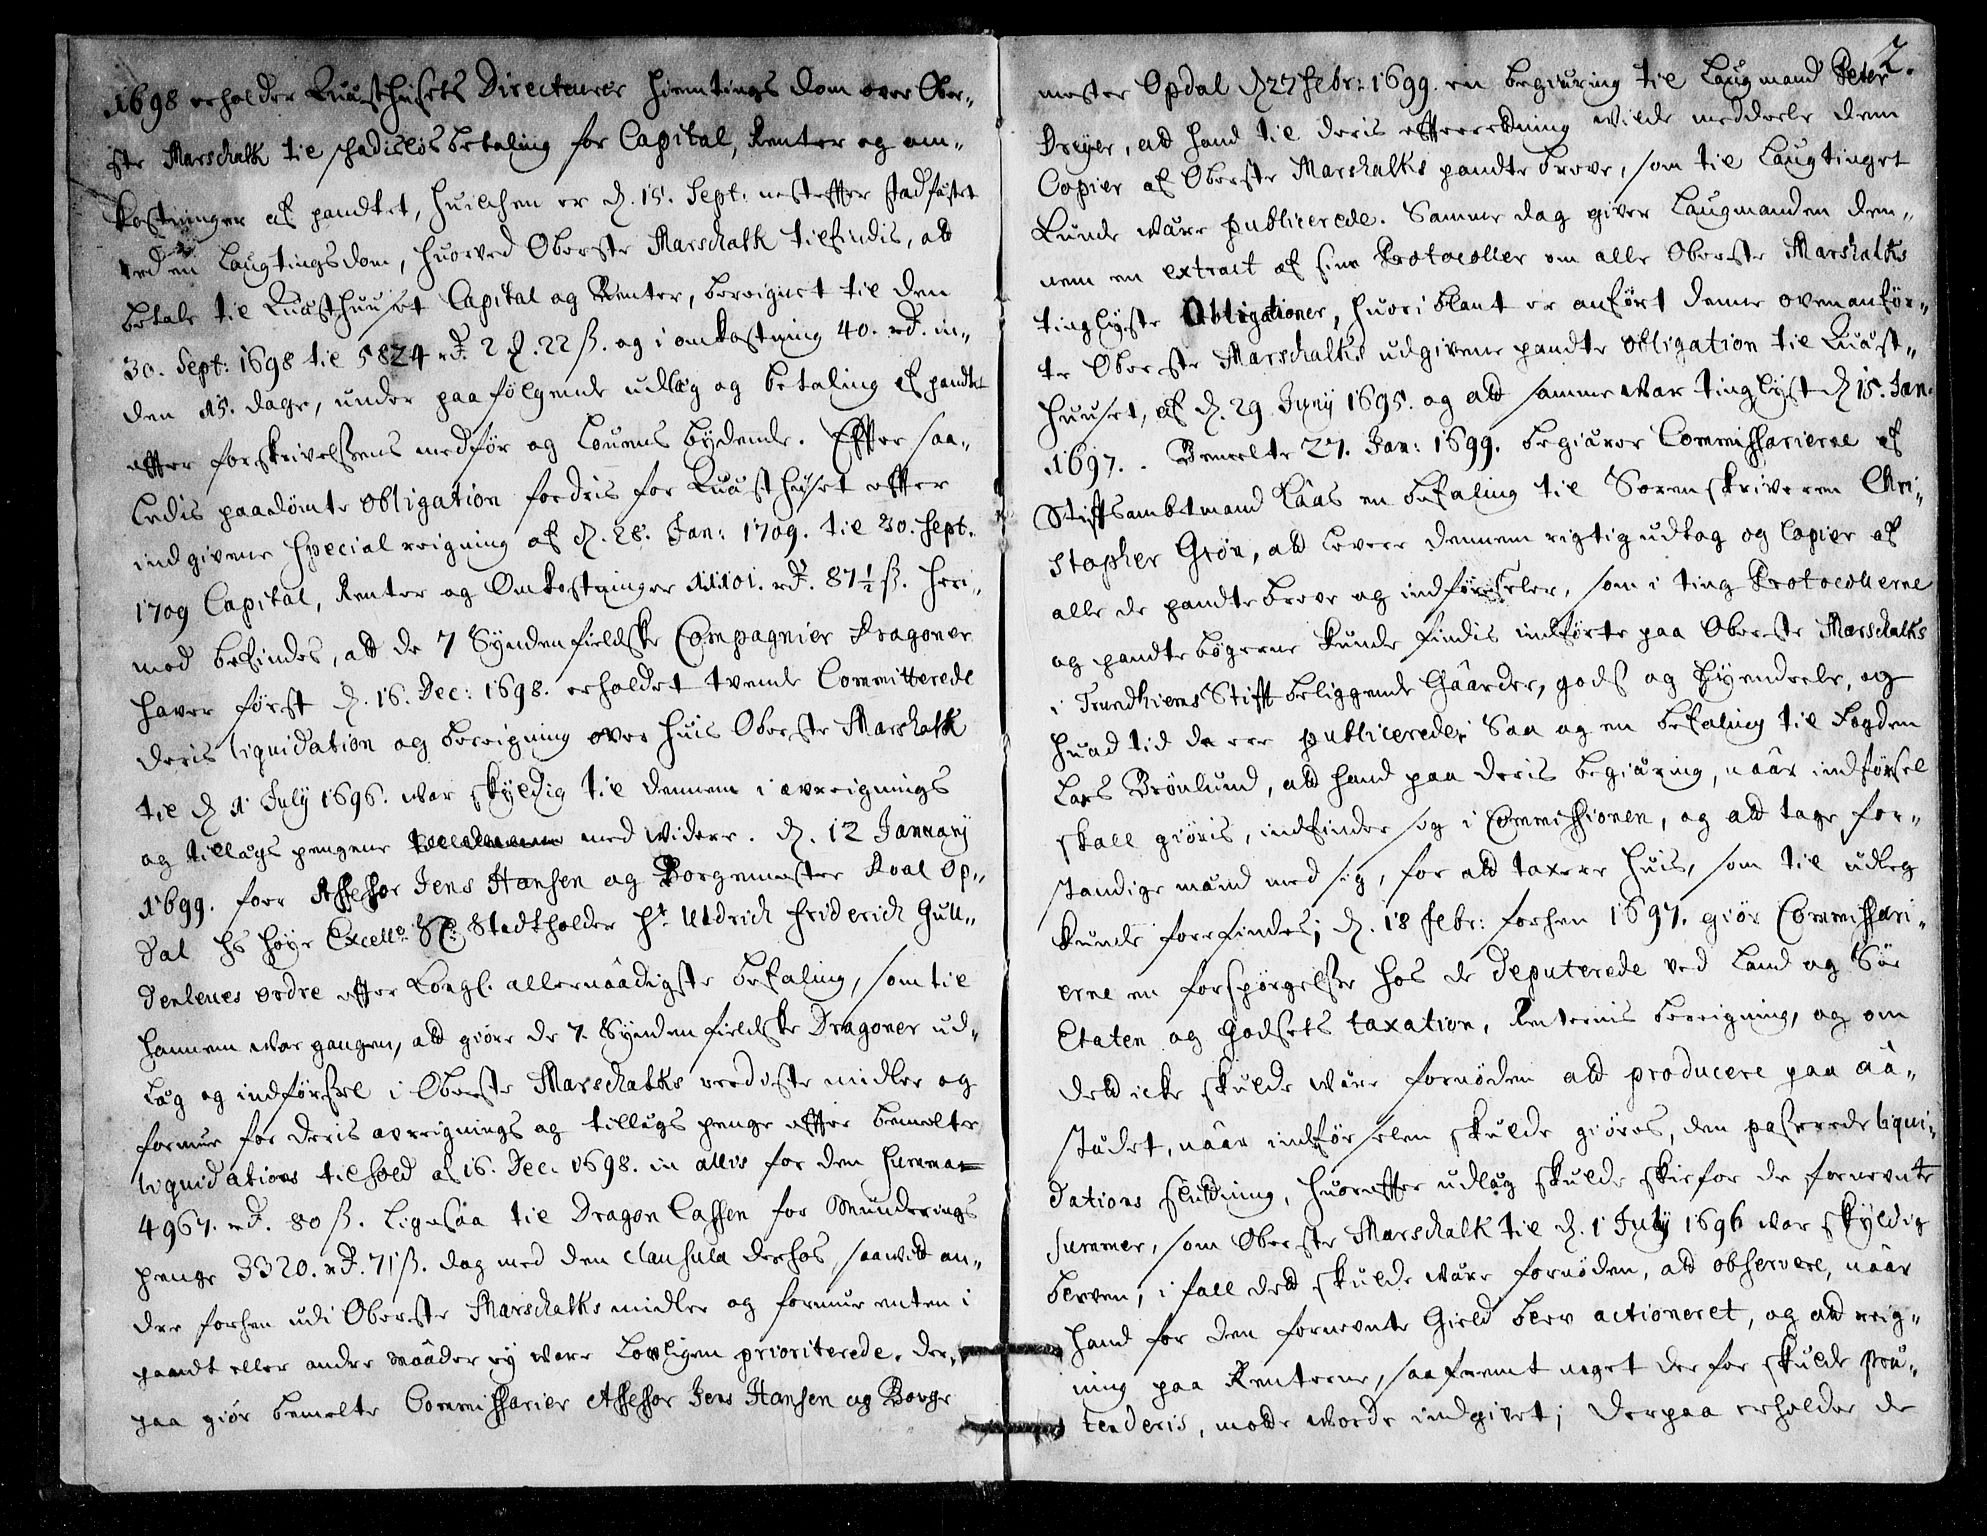 1698 erholder Quæsthusets Directeurer hiemtings dom over Ober-
ste Marschalk til schadisløs betaling for Capital, Renter og om-
kostninger af pandtet, huilchen er d. 15. Sept: nestefter stadfæstet
ved en Laugtingsdom, huorved Oberste Marschalk tilfindis, att
betale til Quæsthuuset Capital og Renter, bereignet til den
30. Sept: 1698 til 5824 rd. 2 ℔. 22 ß. og i omkostning 40. rd. in-
den 15. dage, under paafølgende udlæg og betaling af pandtet
effter forskrivelsens medfør og Louens bydende. Effter saa-
ledis paadømte obligation fordris for Quæsthuset effter
indgivene Special reigning af d. 28. Jan: 1709. til 30. Sept.
1709 Capital, Renter og Omkostninger 11101. rd. 87½ ß. Heri-
mod befindes, att de 7 Syndenfieldske Compagnier Dragoner
haver først d. 16. Dec: 1698. erholdet tvende Committerede
deris liquidation og bereigning over huis Oberste Marschalk
til d. 1 July 1696. var skyldig til dennem i avreignings
og tillægs pengene med videre. d. 12 January
1699. faar Assessor Jens Hansen og Borgemester Roal Op-
dal hs høye Excell: Hr: Stadtholder Hr. Uldrich Friderich Gul-
denlewes ordre effter Kongl. allernaadigste befaling, som til
hannem var gangen, att giøre de 7. Syndenfieldske Dragoner ud-
læg og indførsel i Oberste Marschalks reediste midler og
formue for deris avreignings og tillægs penge effter bemelte
liquidations tilhold af 16. Dec. 1698. in allis for den Summa
4967. rd. 80 ß. Ligesaa til Dragon Cassen for Munderings
penge 3320. rd. 71 ß. dog med den clausula derhos, saavidt an-
dre forhen udi Oberste Marschalks midler og formue enten i
pandt eller andre maader ey vare Lovligen prioriterede. Der-
paa giør bemelte Commissarier Assessor Jens Hansen og Borge
2.
mester Opdal d. 27 Febr: 1699. en begiæring til Laugmand Peter
Dreyer, att hand til deris efterretning vilde meddeele dem
Copier af Oberste Marschalks pandtebreve, som til Laugtinget
kunde være publicerede. Samme dag giver Laugmanden den-
nem en extract af sine Protocoller om alle Oberste Marschalks
tinglyste Obligationer, huoriblant er anført denne ovenanfør-
te Oberste Marschalks udgivene pandte obligation til Quæst-
huuset, af d. 29 Juny 1695. og att samme var tinglyst d. 15. Jan.
1697. Bemelte 27. Jan: 1699. begiærer Commissarierne af
Stiftsambtmand Kaas en befaling til Sorenskriveren Chri-
stopher Grøn, att levere dennem rigtig udtog og Copier af
alle de pandtebreve og indførseler, som i ting Protocollerne
og pandtebøgerne kunde findis indførte paa Oberste Marschalks
i Trundhiems Stift beliggende Gaarder, gods og Eyendeele, og
huad tid de ere publicerede; Saa og en befaling til Fogden
Lars Brønlund, att hand paa deris begiæring, naar indførsel
skall giøris, indfinder sig i Commissionen, og att tage for-
standige mænd med sig, for att taxere huis, som til udleg
kunde forefindes; d. 18 Febr: forhen 1697. giør Commissari-
erne en forspørgelse hos de deputerede ved Land og Søe
Etaten og Godsets taxation, Renternis bereigning, og om
dett icke skulde være fornøden att producere paa aa-
stædet, naar indførselen skulde giøres, den passerede liqui-
dations slutning, huorefter udlæg skulde skee for de fornevnte
Summer, som Oberste Marschalk til d. 1 July 1696 var skyldig
bleven, i fall dett skulde være fornøden, att observere, naar
hand for den fornevnte Gield blev actioneret, og att reig-
ning paa Renterne, saafremt noget derfor skulde præ-
tenderis, motte vorde indgivet; Derpaa erholder de